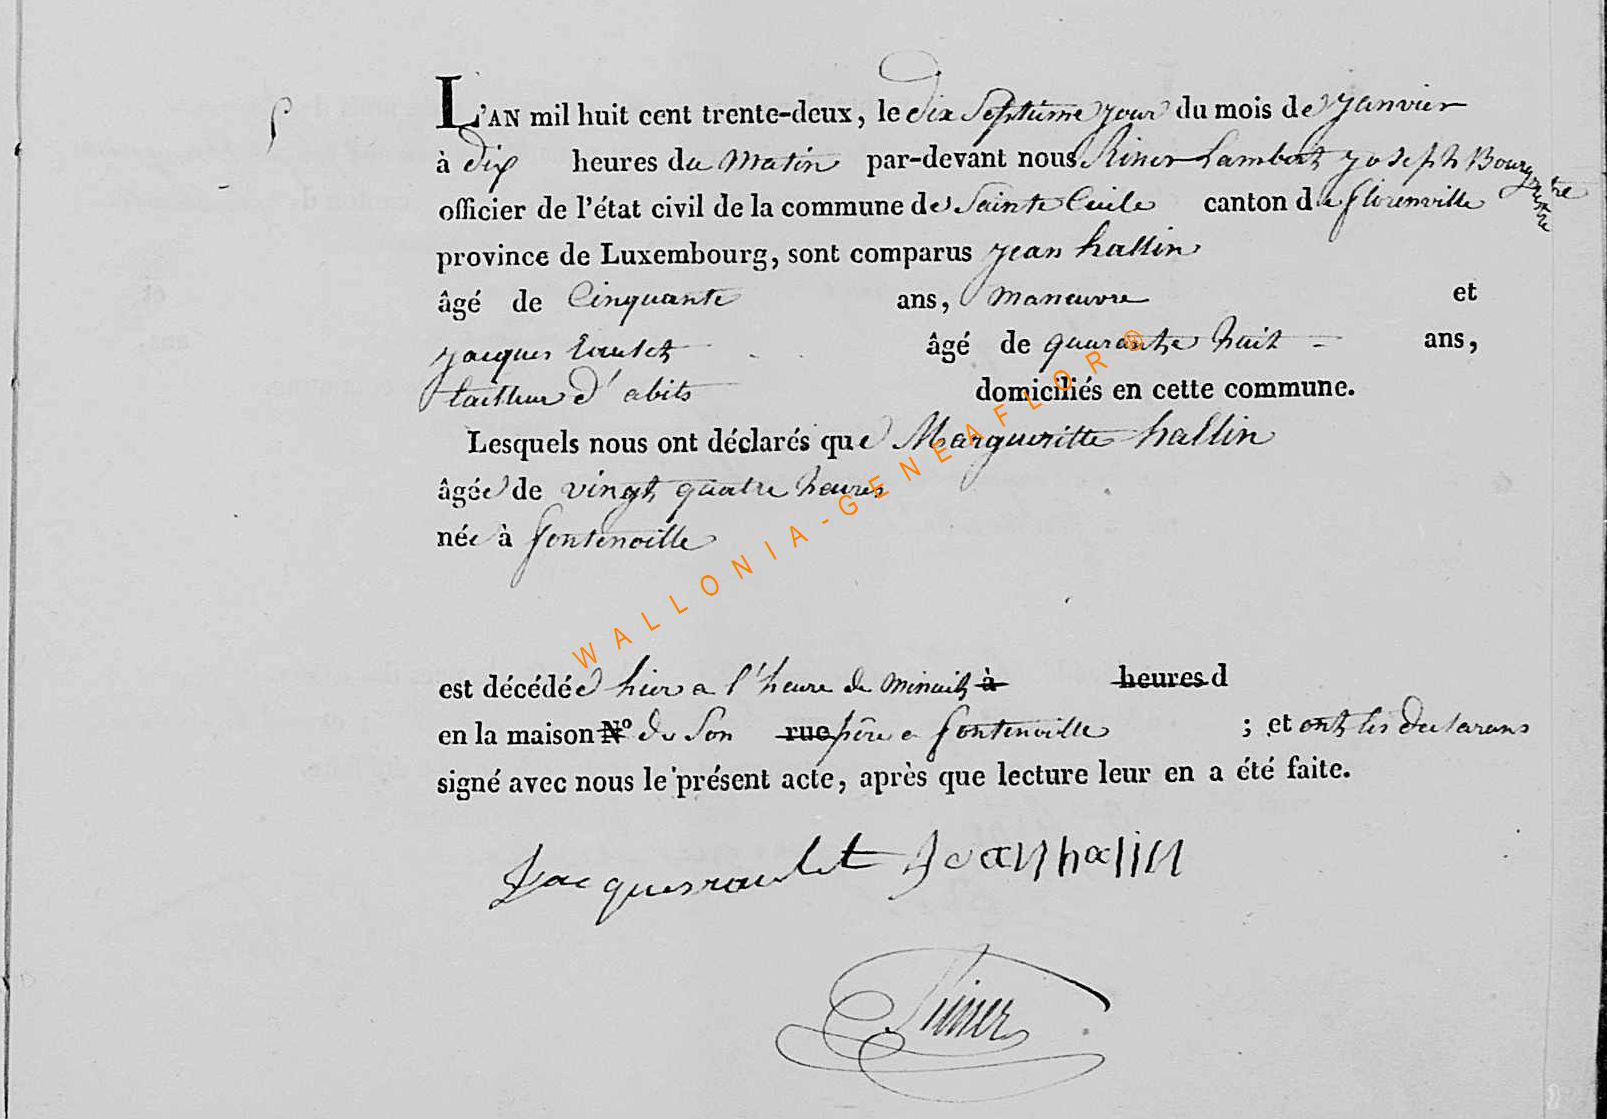 L'AN mil huit cent trente-deux, le dix Septieme jour du mois de janvier
à dix heures du Matin par-devant nous Riner Lambert joseph Bourgmestre
officier de l'état civil de la commune de Sainte Cecile canton de florenville
province de Luxembourg, sont comparus jean hallin
âgé de Cinquante ans, maneuvre et
jacques âgé de quarante huit ans,
tailleur d'abits domiciliés en cette commune.
Lesquels nous ont déclarés que Margueritte hallin
âgée de vingt quatre heures
née à fontenoille
est décédée hier a l'heure de minuit à heures d
en la maison N° de Son rue père a fontenoille ; et ont les declarans
signé avec nous le présent acte, après que lecture leur en a été faite.
Jacques jean hallin
Riner
WALLONIA-GENEAFLOR ®